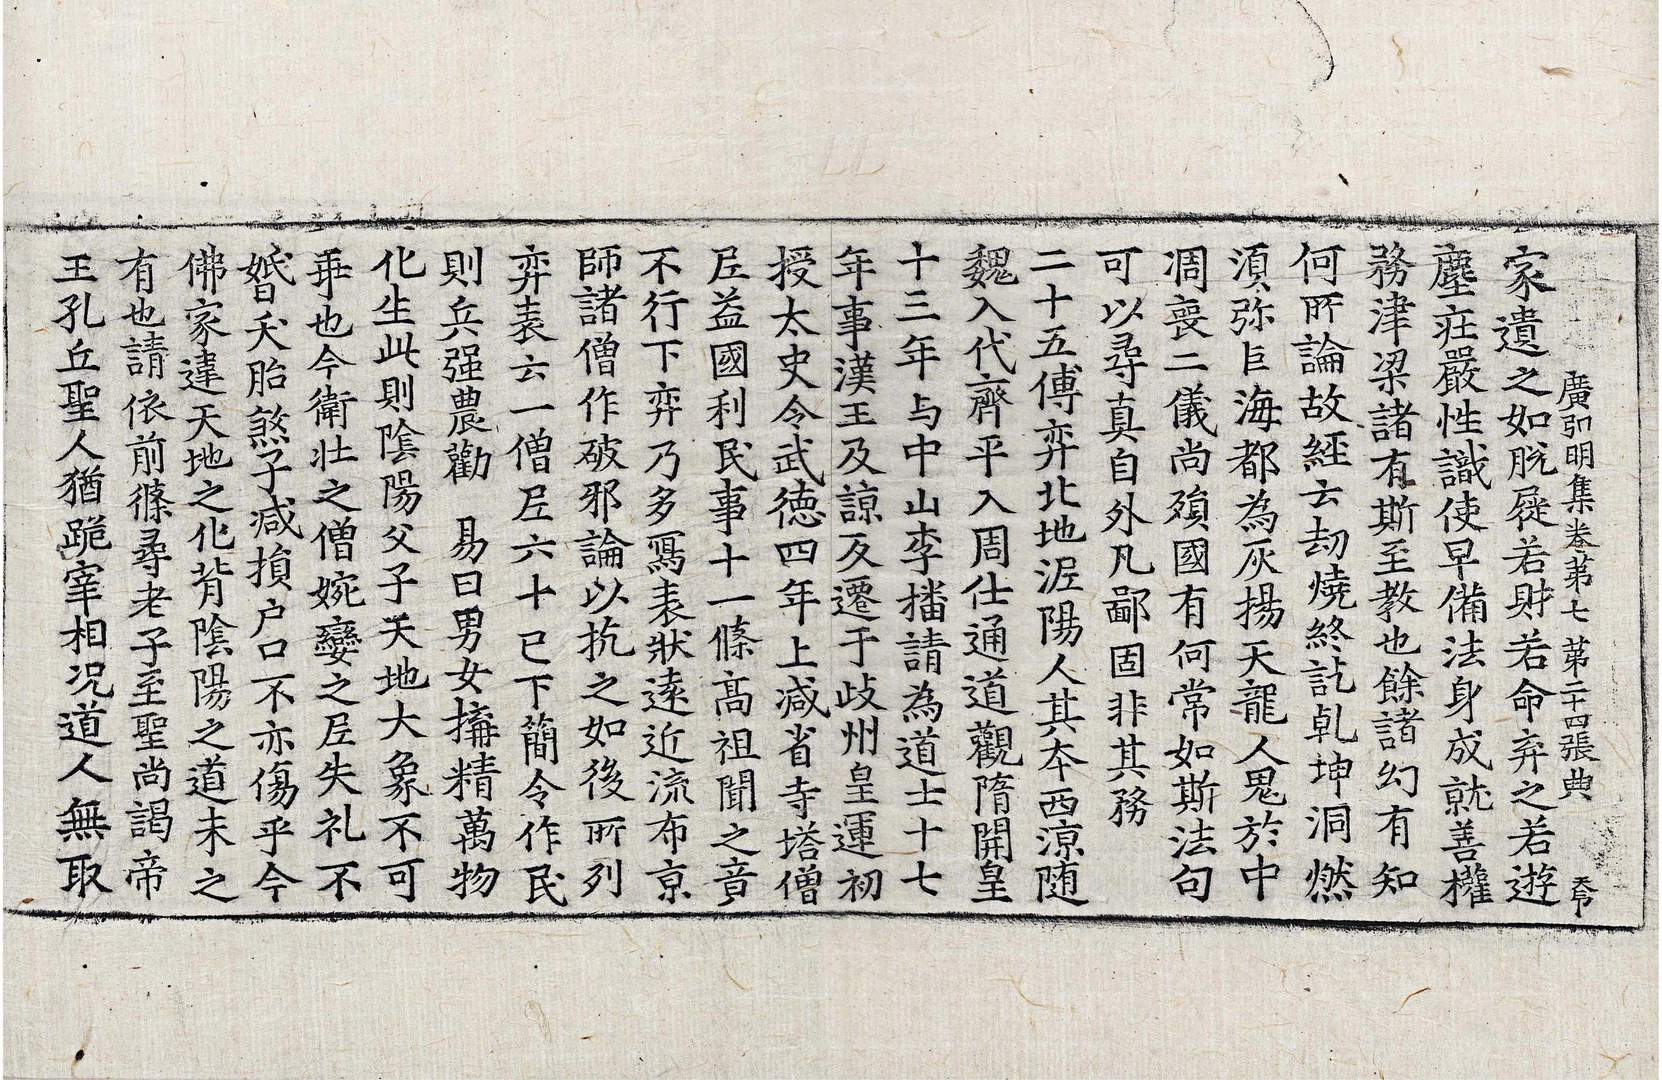 廣弘明集卷第七 第二十四張 典
家遺之如脫屣若財若命弃之若遊
塵莊嚴性識使早備法身成就善權
務津梁諸有斯至教也餘諸幻有知
何所論故經云劫燒終訖乹坤洞燃
湏弥巨海都為灰揚天龍人鬼於中
凋喪二儀尚殞國有何常如斯法句
可以尋真自外凡鄙固非其務
二十五傅弈北地泥陽人其夲西涼随
魏入代齊平入周仕通道觀隋開皇
十三年与中山李播請為道士十七
年事漢王及諒反遷于歧州皇運初
授太史令武德四年上减省寺塔僧
尼益國利民事十一條髙祖聞之竟
不行下弈乃多寫表狀逺近流布京
師諸僧作破邪論以抗之如後所列
弈表云一僧尼六十已下簡令作民
則兵强農勸 易曰男女搆精萬物
化生此則隂陽父子天地大象不可
乖也今衛壯之僧婉孌之尼失礼不
婚夭胎煞子减損户口不亦傷乎今
佛家違天地之化背隂陽之道未之
有也請依前條尋老子至聖尚謁帝
王孔丘聖人猶跪宰相況道人無取